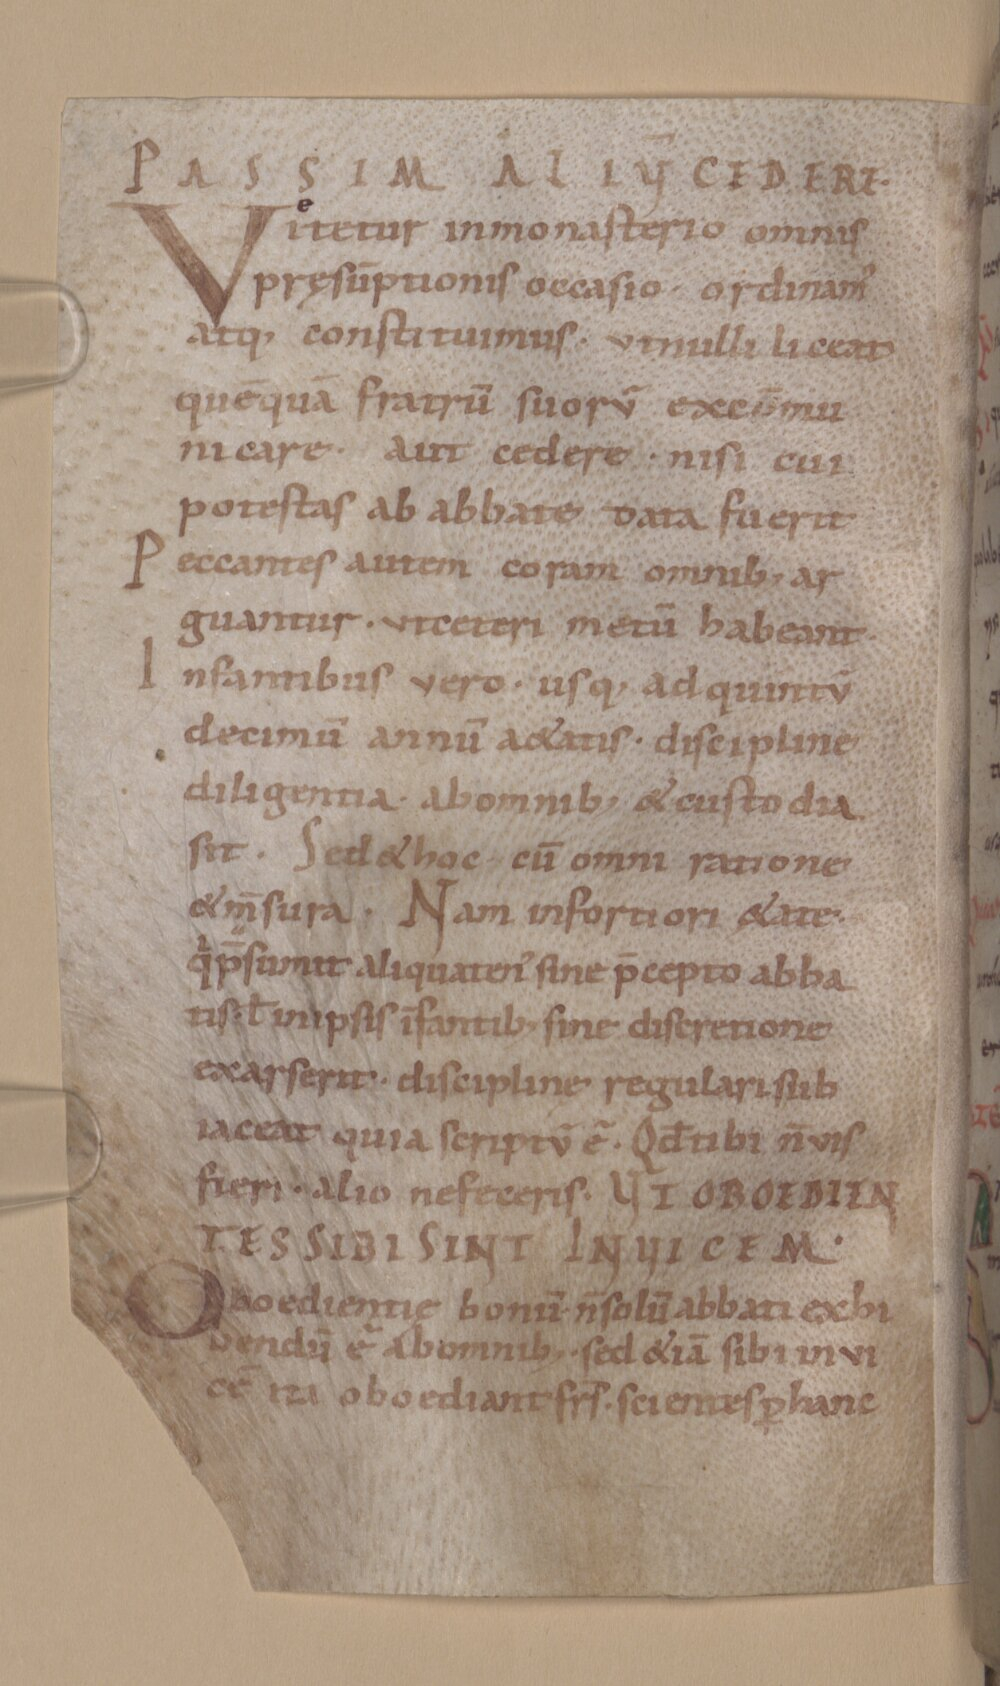 PASSIM ALIŪ CEDERE·
Vitetur inmonasterio omnis
pręsūptionis occasio· ordinam᾽
atq; constituimus· vtnulli liceat
quēquā fratrū suorū excōmu
nicare· aut cedere· nisi cui
potestas ab abbate data fuerit
Peccantes autem coram omnib; ar
guantur· vtceteri metū habeant·
Infantibus vero· usq; adquintū
decimū annū aetatis· discipline
diligentia· abomnib; &custodia
sit· Sed&hoc cū omni ratione
&m̄sura· Nam infortiori &ate·
q̇p̄sumit aliquaten᾽ sine p̄cepto abba
tis· ł inipsis īfantib; sine discretione
exarserit· discipline regulari sub
iaceat quia scriptū ē· Qđtibi n̄vis
fieri· alio nefeceris· UT OBOEDIEN
TES SIBI SINT INUICEM·
Oboedientię bonū n̄solū abbati exhi
bendū ē abomnib; sed &iā sibi invi
cē ita oboediant frs̄· scientes ꝑhanc